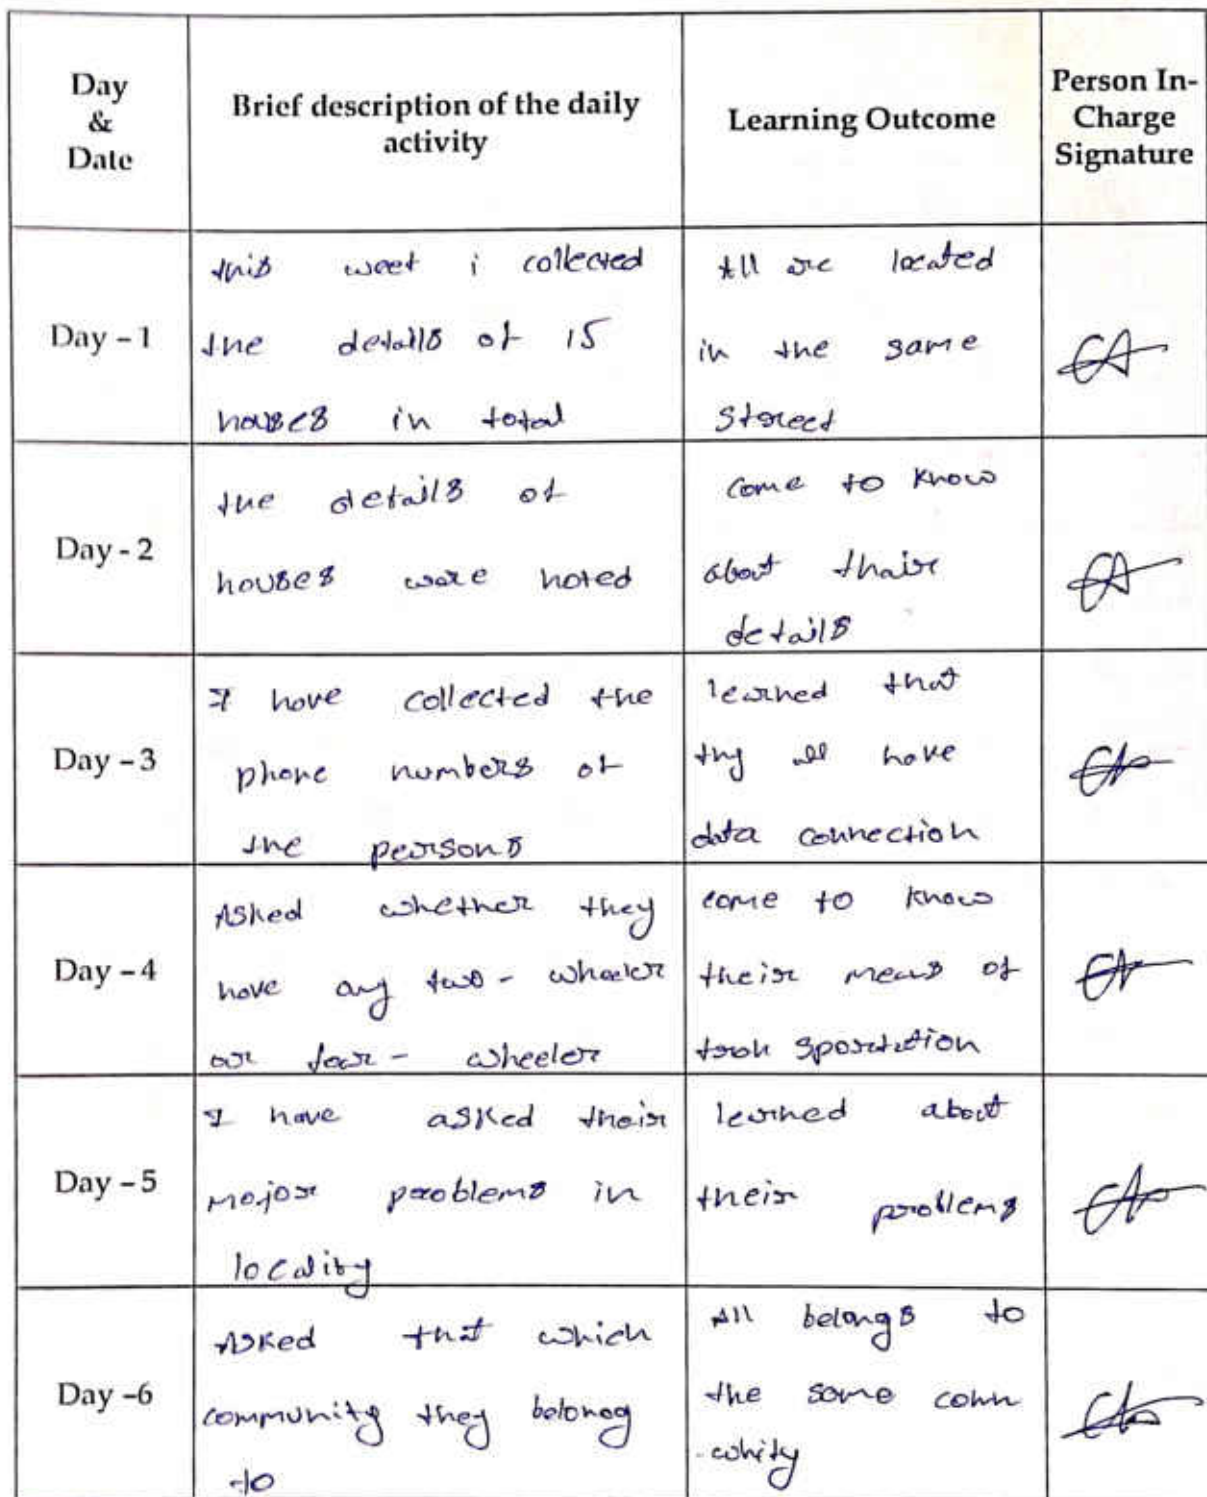 Day
&
Date
Brief description of the daily
activity
Learning Outcome
Person In-
Charge
Signature
Day - 1
this weet i collected
the details of 15
houses in total
All are located
in the same
Street
Day - 2
the details of
houses ware noted
Come to know
about thair
details
Day - 3
I have collected the
phone numbers of
the persons
learned that
thy all have
data connection
Day - 4
Asked whether they
have any two - wheeler
or four - wheeler
come to know
their means of
transportation
Day - 5
I have asked their
major problems in
locality
learned about
their problems
Day -6
Asked that which
community they belong
to
All belongs to
the same comm
-unity